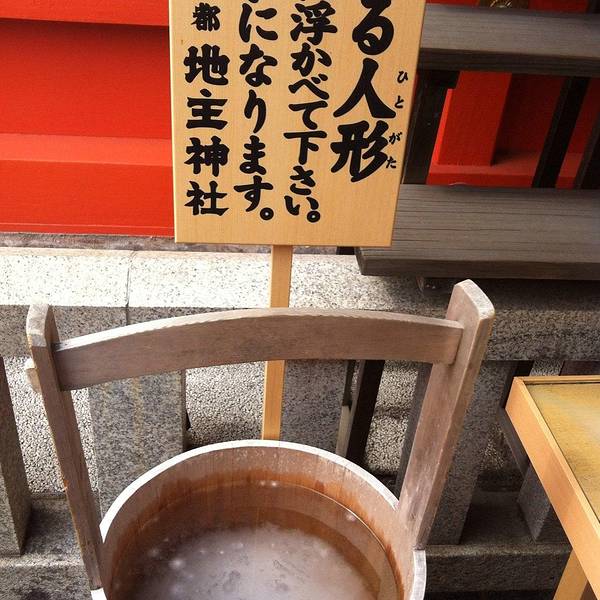 る人形
ひとがた
浮かべて下さい。
になります。
都 地主神社